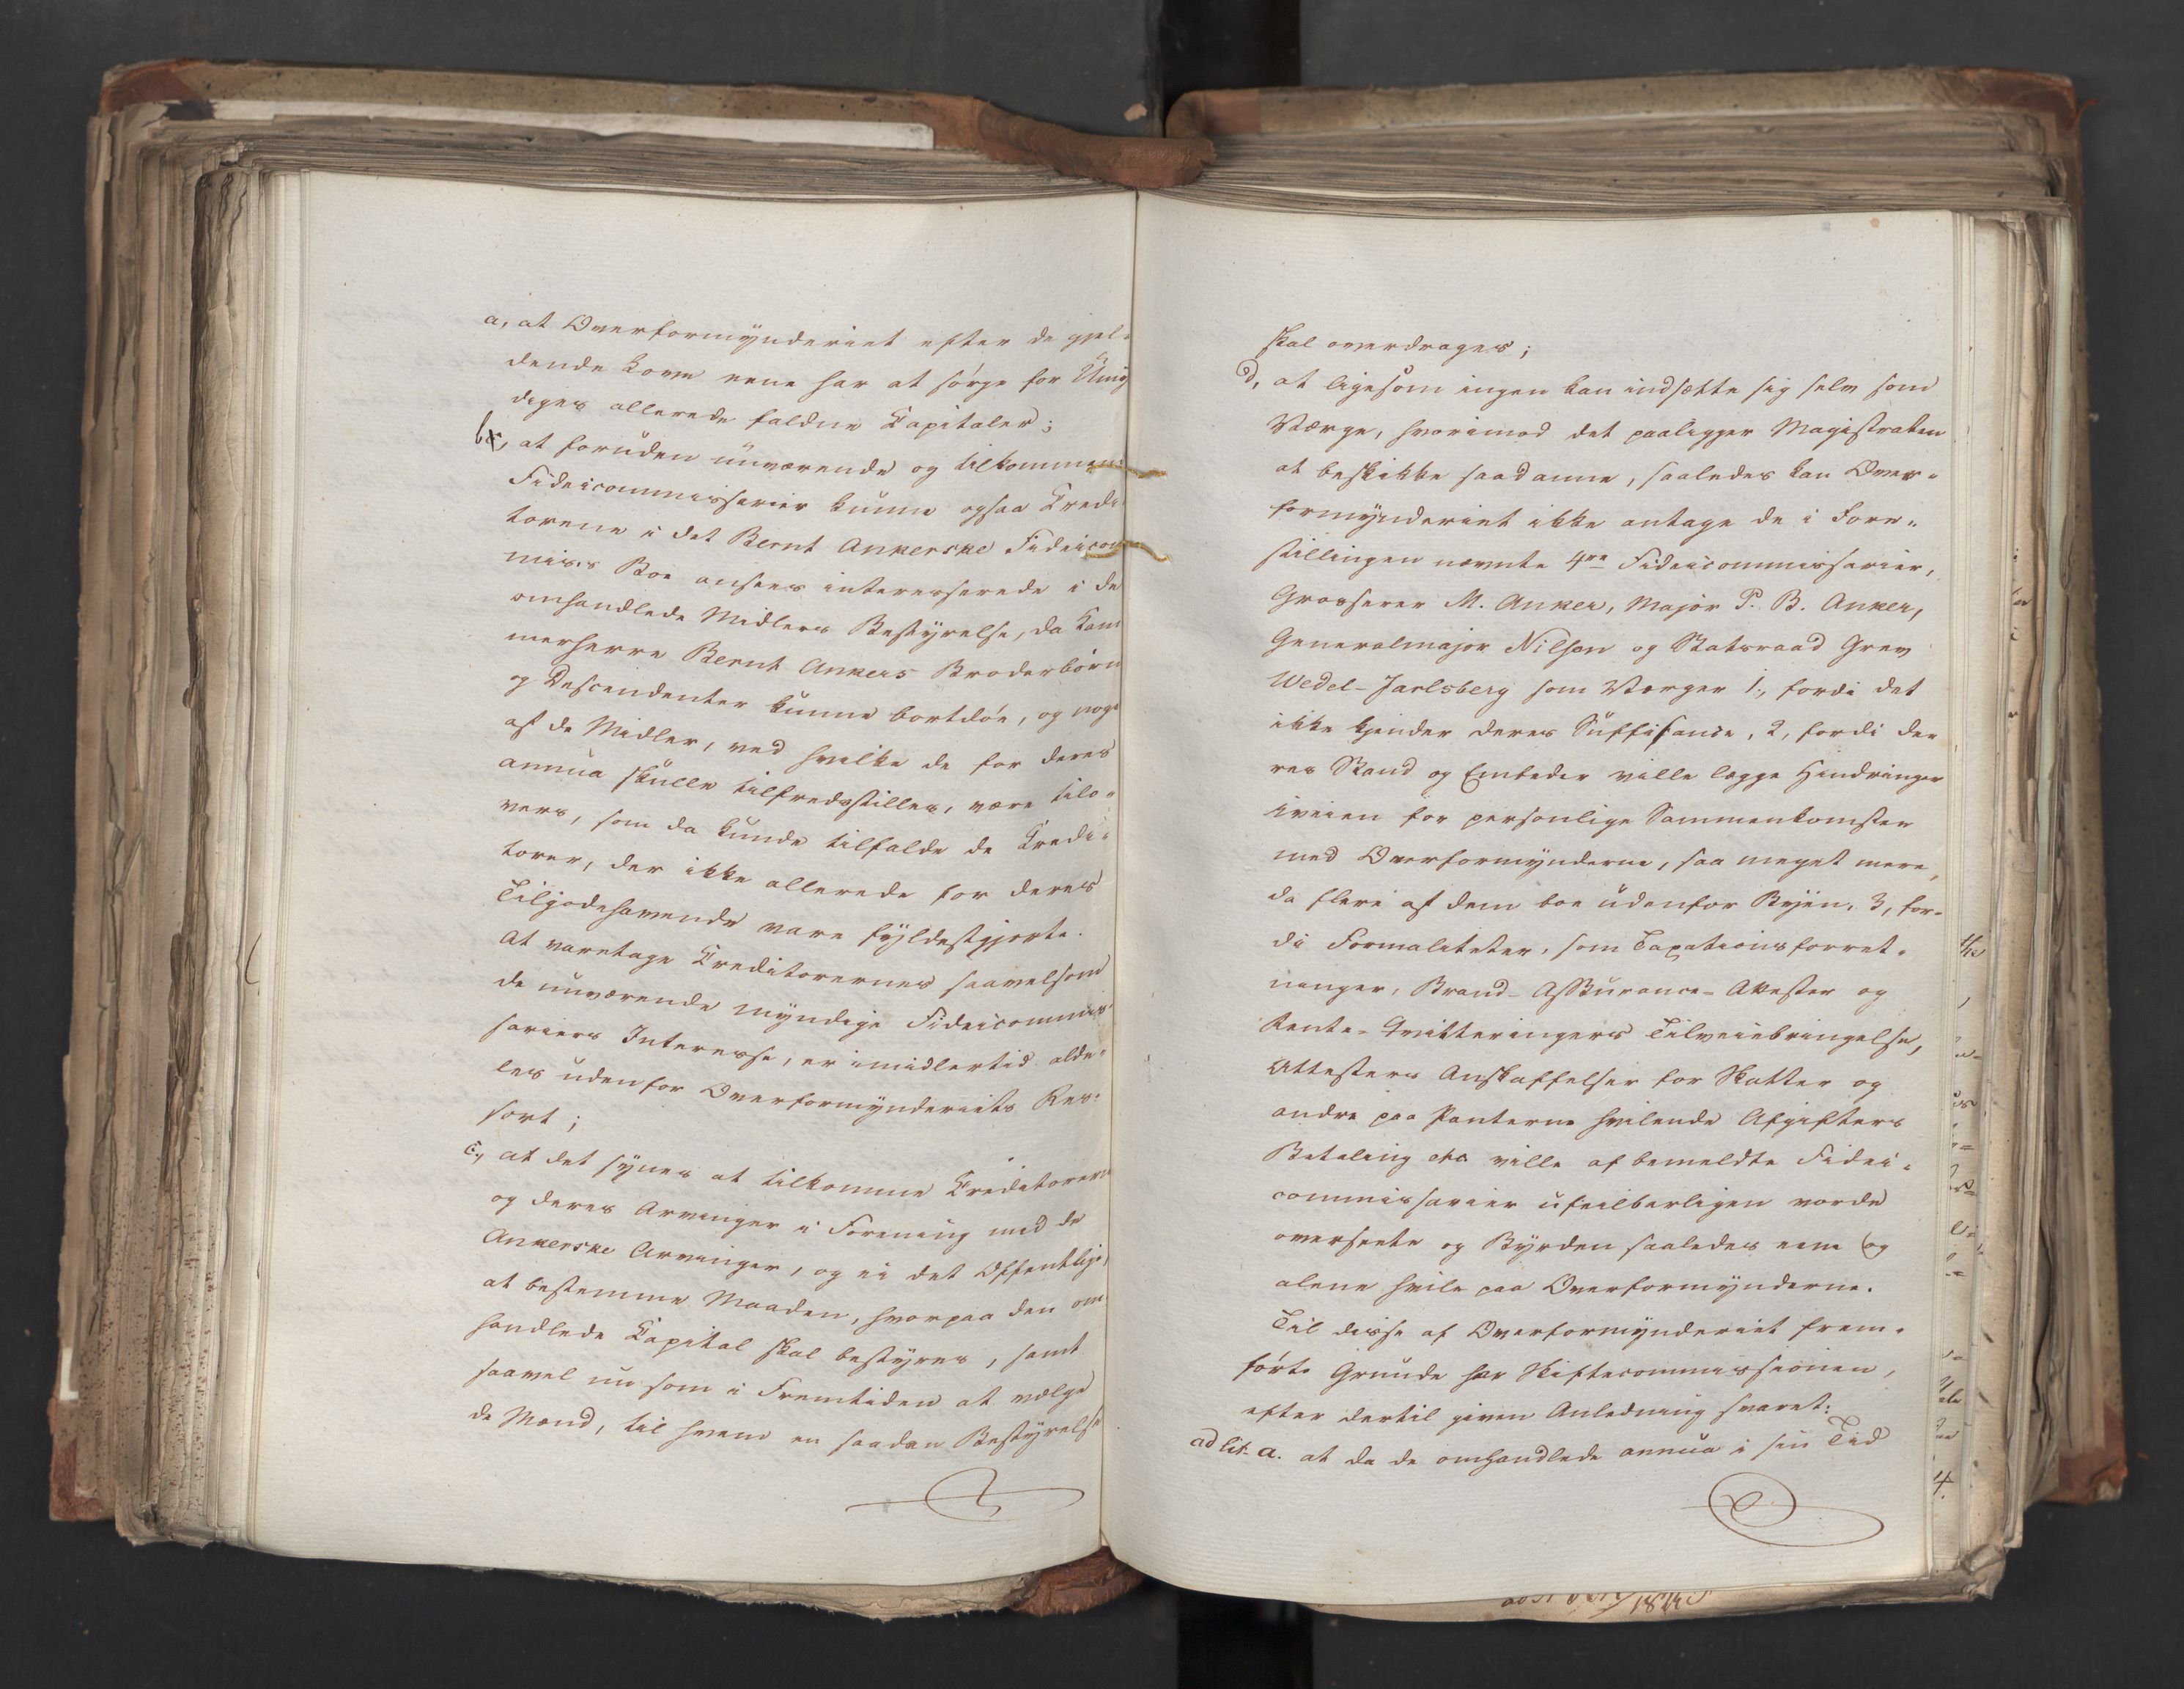 a, at Overformynderiet efter de gjel-
dende Love eene har at sørge for Umyn
diges allerede faldne Capitaler;
b, at foruden nuværende og tilkommen
Fideicommissarier kunne ogsaa Credi
torene i det Bernt Ankerske Fideicom
miss Boe ansees interesserede i de
omhandlede Midlers Bestyrelse, da Kam
merherre Bernt Ankers Broderbørn
og Descendenter kunne bortdøe, og noge
af de Midler, ved hvilke de for deres
annua skulle tilfredsstilles, være tilo-
vers, som da kunde tilfalde de Credi-
torer, der ikke allerede for deres
Tilgodehavende vare fyldestgjorte.
At varetage Creditorernes saavelsom
de nuværende myndige Fideicommis-
sariers Interesse, er imidlertid alde-
les udenfor Overformynderiets Res-
sort;
c, at det synes at tilkomme Creditorern
og deres Arvinger i Forening med de
Ankerske Arvinger, og ei det Offentlige,
at bestemme Maaden, hvorpaa den om
handlede Capital skal bestyres, samt
saavel nu som i Fremtiden at vælge
de Mænd, til hvem en saadan Bestyrelse
skal overdrages;
d, at ligesom ingen kan indsætte sig selv som
Værge, hvorimod det paaligger Magistraten
at beskikke saadanne, saaledes kan Over-
formynderiet ikke antage de i Fore-
stillingen nævnte 4re Fideicommissarier,
Grosserer M. Anker, Major P. B. Anker,
Generalmajor Nilson og Statsraad Grev
Wedel-Jarlsberg som Værger 1, fordi det
ikke kjender deres Suffisance, 2, fordi de
res Stand og Embeder ville lægge Hindringer
iveien for personlige Sammenkomster
med Overformynderne, saa meget mere,
da flere af dem boe udenfor Byen, 3, for-
di Formaliteter, som Taxationsforret-
ninger, Brand-Assurance-Attester og
Rente-Qvitteringers Tilveiebringelse,
Attesters Anskaffelser for Skatter og
andre paa Panterne hvilende Afgifters
Betaling etc ville af bemeldte Fidei-
commissarier ufeilbarligen vorde
overseete og Byrden saaledes eene og
alene hvile paa Overformynderne.
Til disse af Overformynderiet frem-
førte Grunde har Skiftecommissionen,
efter dertil given Anledning svaret:
ad lit. a. at da de omhandlede annua i sin Tid